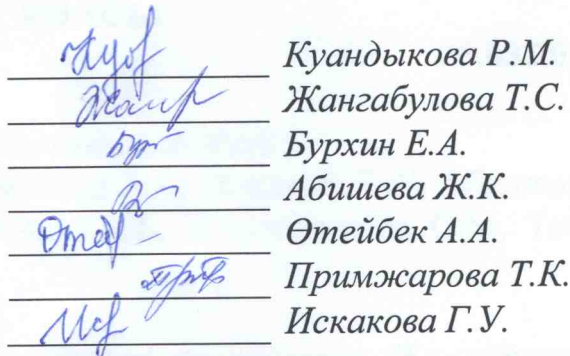 Куандыкова Р.М.
Жангабулова Т.С.
Бурхин Е.А.
Абишева Ж.К.
Өтейбек А.А.
Примжарова Т.К.
Искакова Г.У.